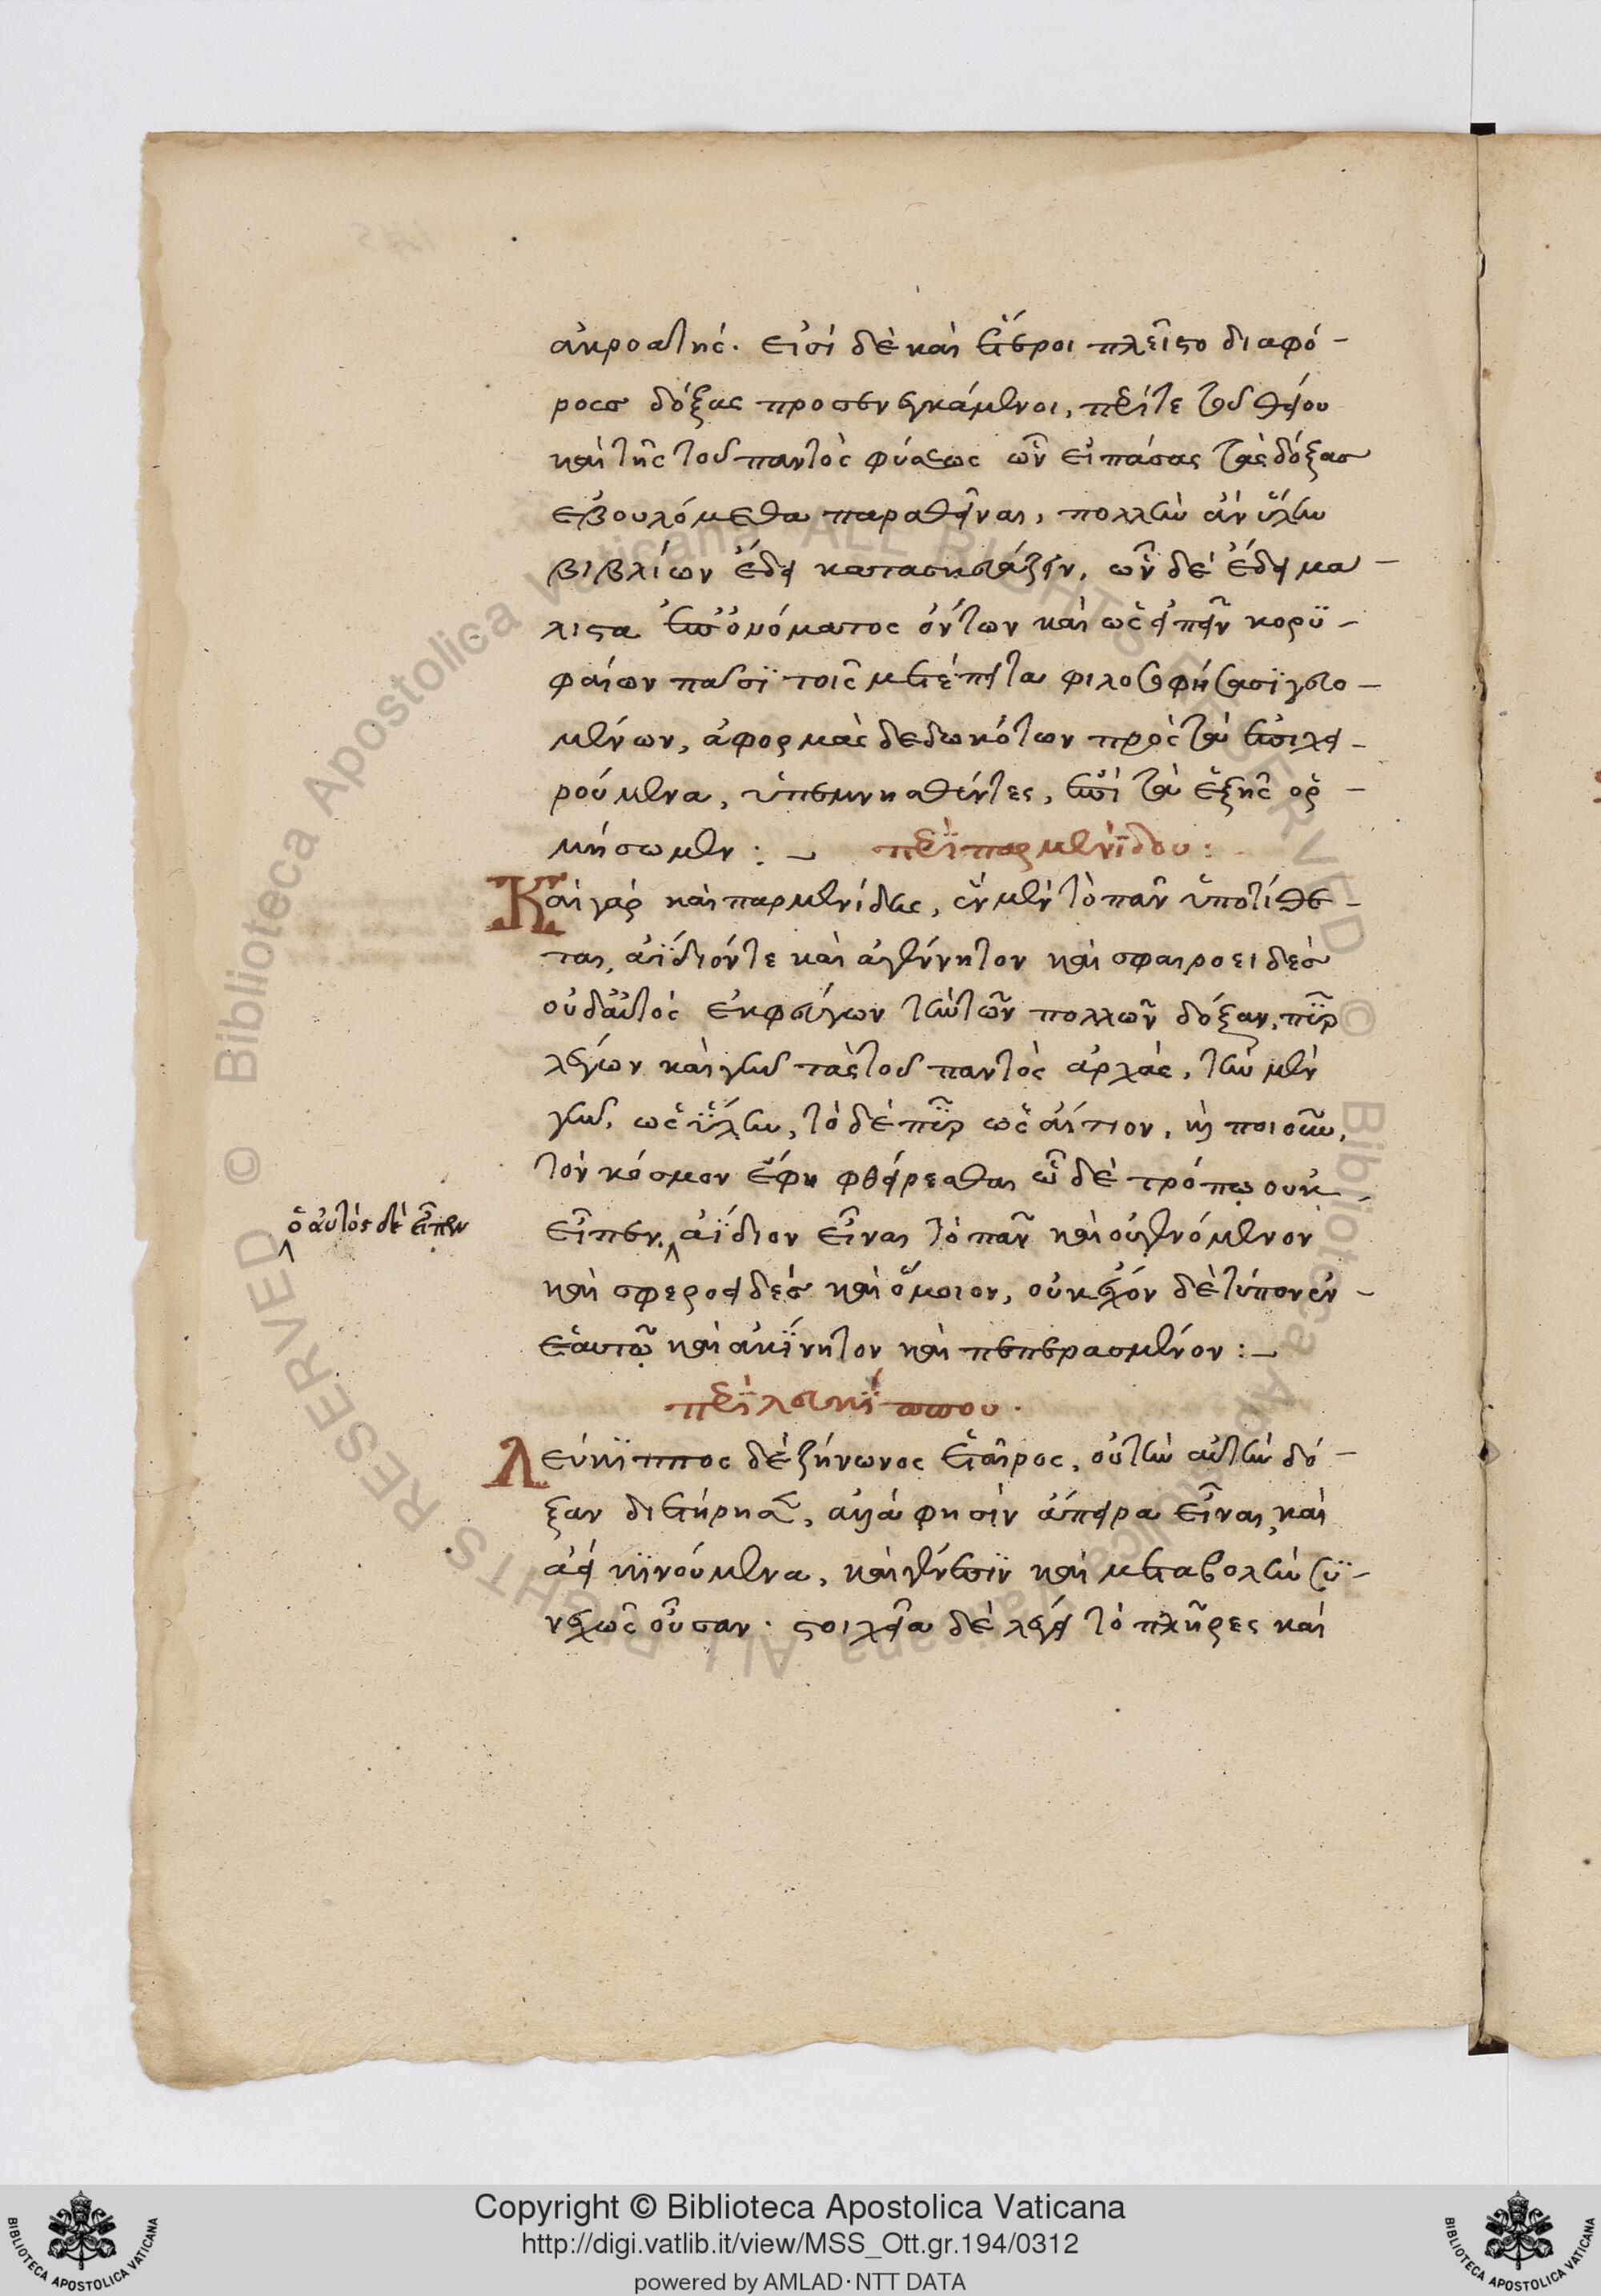 ἀκροατής. εἰσὶ δὲ καὶ ἕτεροι πλεῖστο διαφό-
ρους δόξας προσενεγκάμενοι, περί τε τοῦ θείου
καὶ τῆς τοῦ παντὸς φύσεως ὧν εἰ πάσας τὰς δόξας
ἐβουλόμεθα παραθεῖναι, πολλὴν ἂν ὕλην
βιβλίων ἔδει κατασκευάζειν, ὧν δὲ ἔδει μα-
λιστα ἐπ ὀνόματος ὄντων καὶ ὡς εἰπεῖν κορϋ-
φαίων πᾶσϊ τοῖς μετέπειτα φιλοσοφήσασϊ γενο-
μένων, ἀφορμὰς δεδωκότων πρὸς τὰ ἐπιχει-
ρούμενα, ὑπεμνησθέντες, ἐπὶ τὰ ἑξῆς ὁρ-
μήσωμεν :
περὶ παρμενίδου :
Καὶ γὰρ καὶ παρμενίδης, ἓν μὲν τὸ πᾶν ὑποτίθε-
ται, ἀΐδιόν τε καὶ ἀγέννητον καὶ σφαιροειδὲς
οὐδ αὐτὸς ἐκφεύγων τὴν τῶν πολλῶν δόξαν, πῦρ
λέγων καὶ γῆν τὰς τοῦ παντὸς ἀρχάς, τὴν μὲν
γῆν, ὡς ὕλην, τὸ δὲ πῦρ ὡς αἴτιον, καὶ ποιοῦν,
τὸν κόσμον ἔφη φθείρεσθαι ὧ δὲ τρόπῳ οὐκ
ὁ αὐτὸς δὲ εἶπεν
εἶπεν, ἀΐδιον εἶναι τὸ πᾶν καὶ οὐ γενόμενον
καὶ σφεροειδὲς καὶ ὅμοιον, οὐκ ἔχον δὲ τύπον ἐν
ἑαυτῷ καὶ ἀκΐνητον καὶ πεπερασμένον :
περὶ λευκΐππου.
Λεύκϊππος δὲ ζήνωνος ἑταῖρος, οὐ τὴν αὐτὴν δό-
ξαν διετήρησεν, ἀλλά φησὶν ἄπειρα εἶναι, καὶ
ἀεὶ κϊνούμενα, καὶ γένεσϊν καὶ μεταβολὴν σϋ-
νεχῶς οὖσαν. στοιχεῖα δὲ λέγει τὸ πλῆρες καὶ
Copyright © Biblioteca Apostolica Vaticana
http://digi.vatlib.it/view/MSS_Ott.gr.194/0312
powered by AMLAD·NTT DATA
BIBLIOTECA APOSTOLICA VATICANA
BIBLIOTECA APOSTOLICA VATICANA
© Biblioteca Apostolica Vaticana ALL RIGHTS RESERVED © Biblioteca Apostolica Vaticana ALL RIGHTS RESERVED